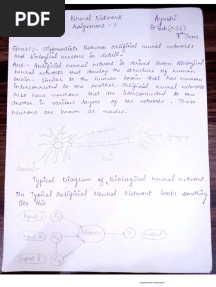 PDF
Neural Network
Ayushi
Assignment - 1
B.Tech (CSE)
7th Sem
Ques:- Differentiate between artificial neural networks
and biological neurons in detail.
Ans:- Artificial neural network is derived from Biological
neural networks that develop the structure of human
brain. Similar to the human brain that has neurons
interconnected to one another, artificial neural networks
also have neurons that are interconnected to one
another in various layers of the networks. These
neurons are known as nodes.
Typical Diagram of Biological neural network
The typical Artificial Neural Network looks something
like this
Input 1
Input 2
Output